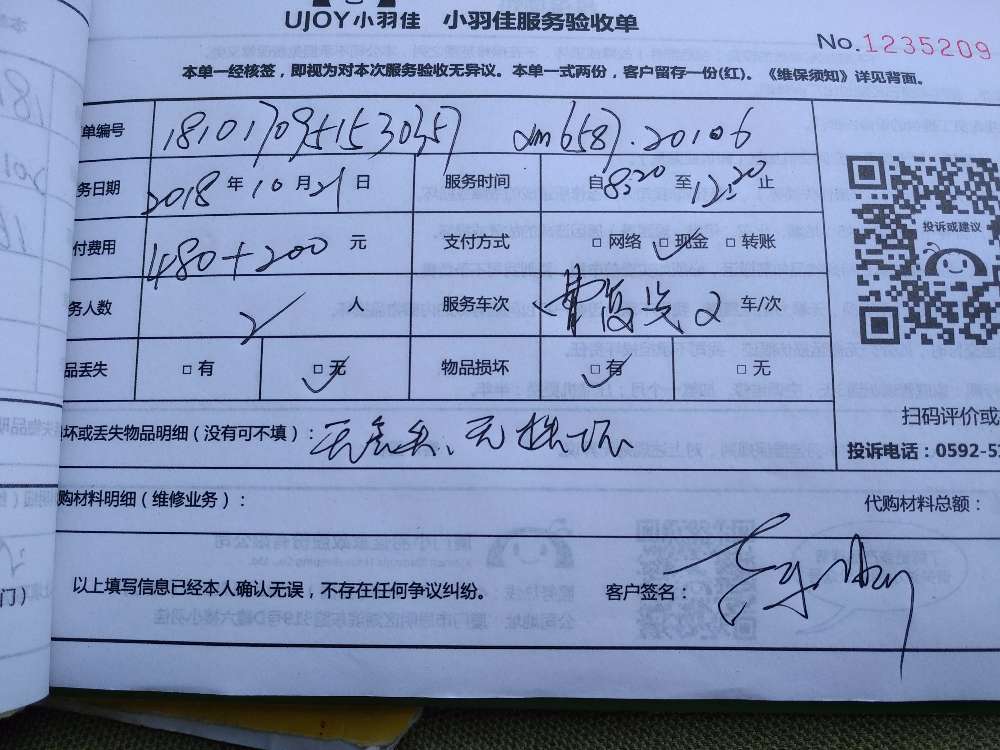 UJOY小羽佳 小羽佳服务验收单
No.1235209
本单一经核签，即视为对本次服务验收无异议。本单一式两份，客户留存一份(红)。《维保须知》详见背面。
单编号 181017095153057
务日期 2018 年 10 月 21 日 服务时间 自 8:20 至 12:20 止
投诉或建议
付费用 480+200 元 支付方式 □ 网络 ☑ 现金 □ 转账
务人数 2 人 服务车次 2 车/次
品丢失 □ 有 ☑ 无 物品损坏 ☑ 有 □ 无
扫码评价或
坏或丢失物品明细（没有可不填）： 无丢失、无损坏
投诉电话：0592-5
购材料明细（维修业务）： 代购材料总额：
以上填写信息已经本人确认无误，不存在任何争议纠纷。 客户签名：
门）